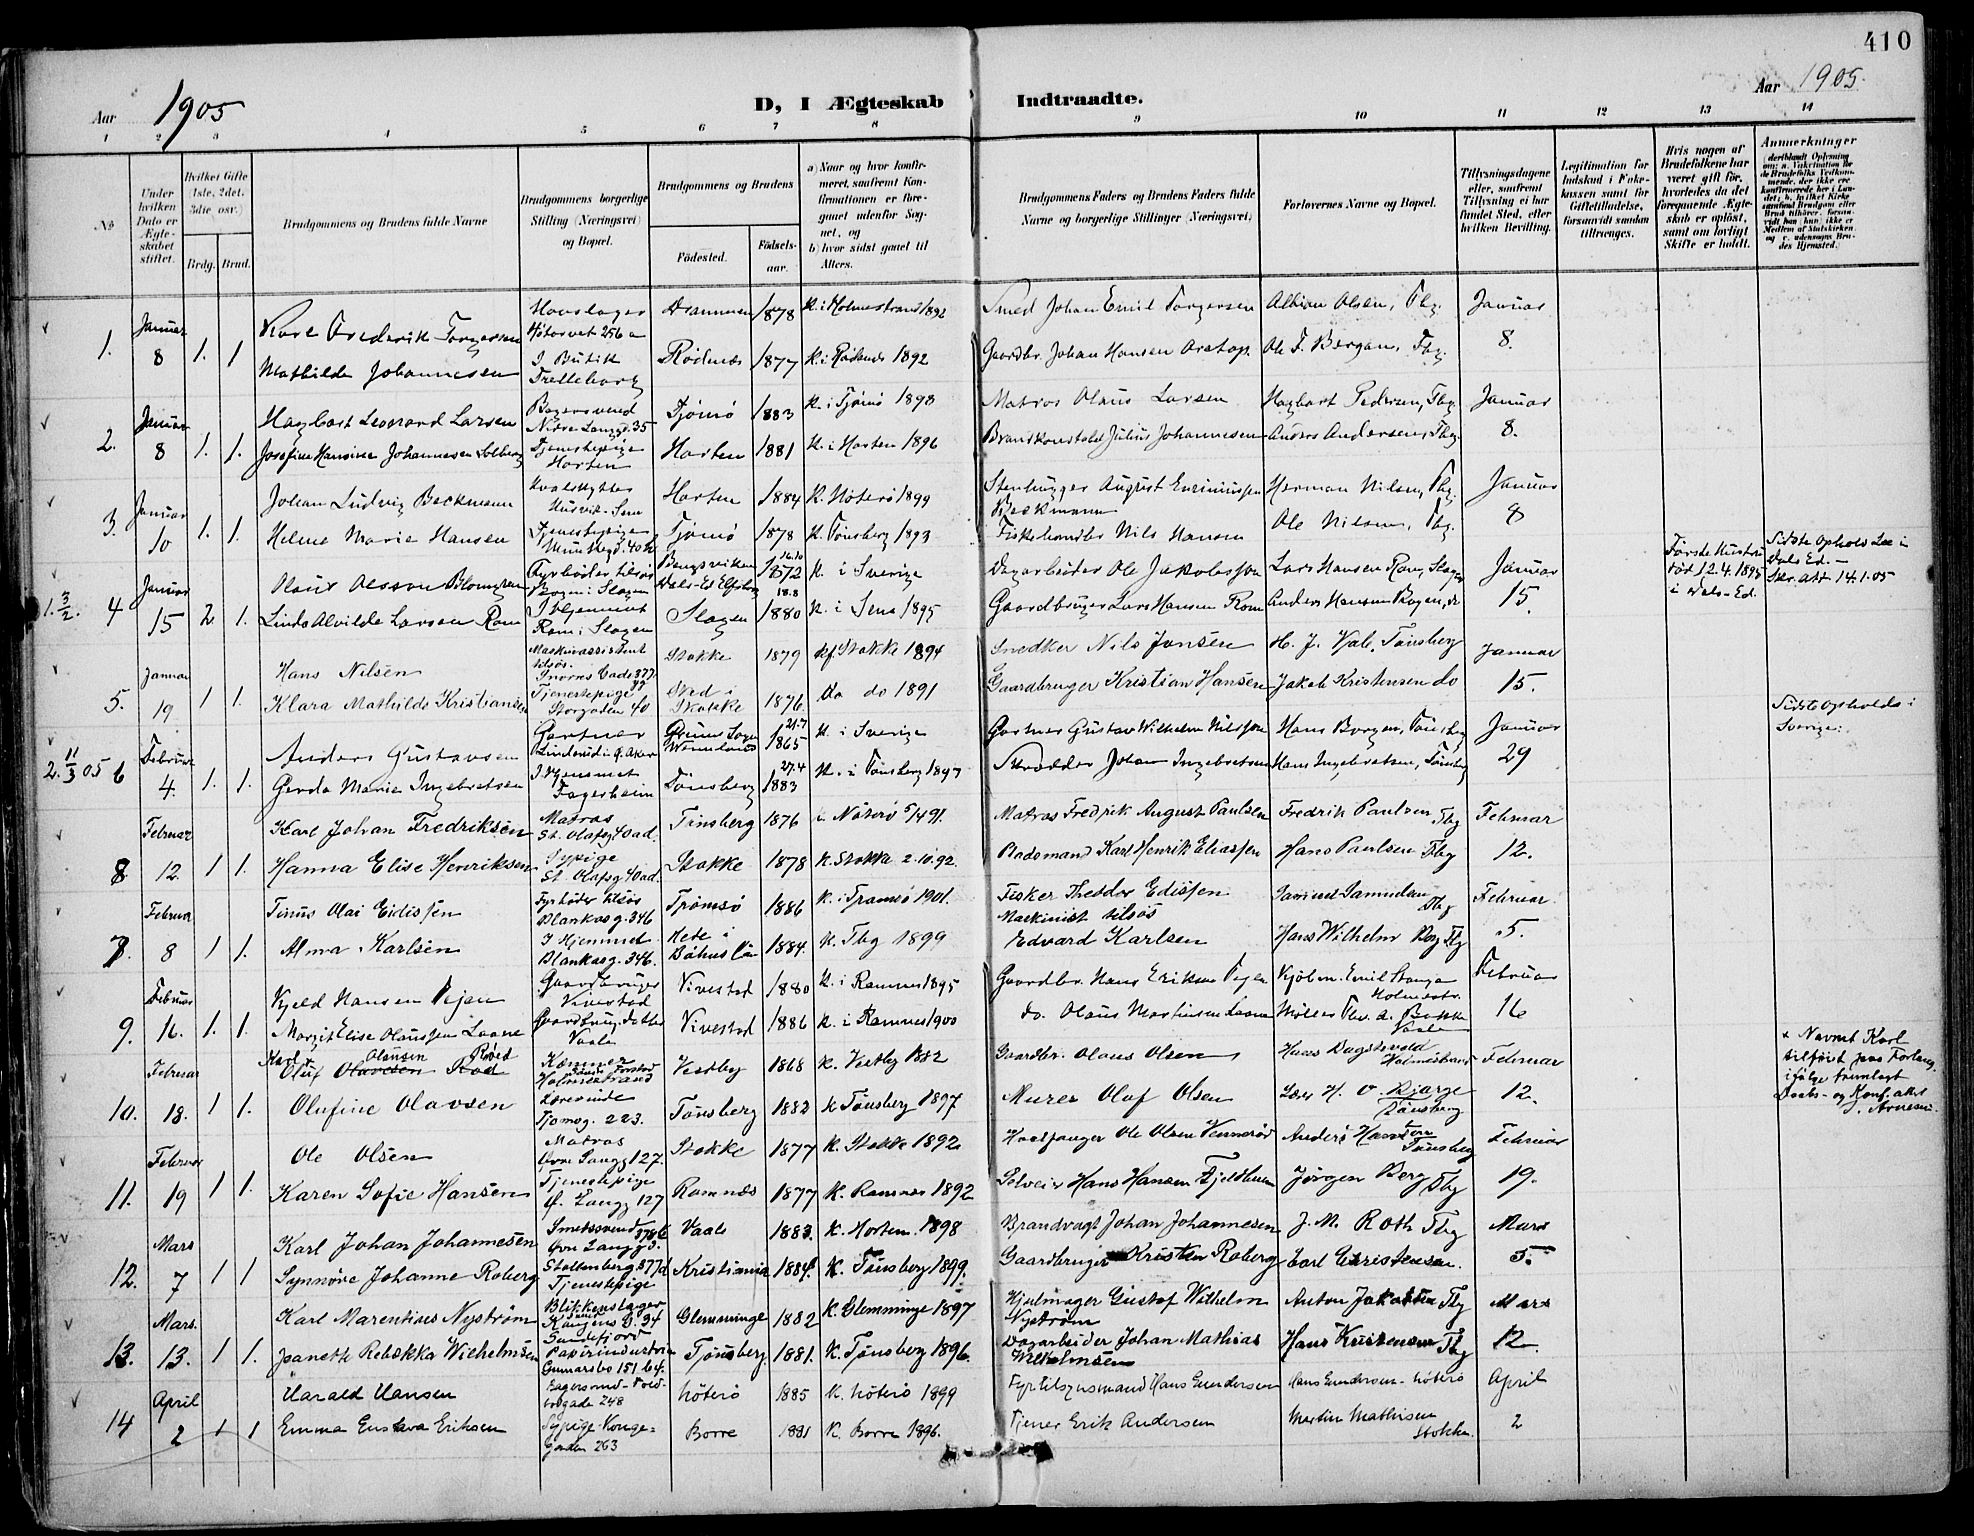 410
Aar 1905
D, I Ægteskab Indtraadte.
Aar 1905.
1 2 3 4 5 6 7 8 9 10 11 12 13 14
No
Under hvilken Dato er Ægteskabet stiftet.
Hvilket Gifte (1ste, 2det, 3die osv.)
Brdg. Brud.
Brudgommens og Brudens fulde Navne
Brudgommens borgerlige Stilling (Næringsvei) og Bopæl.
Brudgommens og Brudens
Fødested.
Fødselsaar.
a) Naar og hvor konfirmeret, saafremt Konfirmationen er foregaaet udenfor Sognet, og
b) hvor sidst gaaet til Alters.
Brudgommens Faders og Brudens Faders fulde Navne og borgerlige Stillinger (Næringsvei)
Forlovernes Navne og Bopæl.
Tillysningsdagene eller, saafremt Tillysning ei har fundet Sted, efter hvilken Bevilling.
Legitimation for Indskud i Enkekassen samt for Giftetilladelse, forsaavidt saadan tiltrænges.
Hvis nogen af Brudefolkene har været gift før, hvorledes da det foregaaende Ægteskab er opløst, samt om lovligt Skifte er holdt.
Anmerkninger
1. Januar 8 1. 1
Kare Frederik Torgersen Hovslager Drammen 1878 K. i Holmestrand 1892 Smed Johan Emil Torgersen Albian Olsen, Tbg. Januar
Høtorvet 256a
Mathilde Johannesen I Butik Rødnæs 1877 K. i Rødnæs 1892 Gaardbr. Johan Hansen Ole F. Bergan, Tbg. 8.
Trelleborg
2. Januar 8 1. 1.
Hagbart Leonard Larsen Bagersvend Tjømø 1883 K. i Tjømø 1898 Matros Olaus Larsen Hagbart Pedersen, Tbg. Januar
Nedre Langg. 35
Josefine Hansine Johannesen Solberg Tjenestepige Horten 1881 K. i Horten 1896 Brandkonstabel Julius Johannesen Anders Andersen, Tbg. 8.
Horten
3. Januar 10 1. 1.
Johan Ludvig Beckmann Hvalskytter Horten 1884 K. Nøterø 1899 Stenhugger August Herman Nilsen, Tbg. Januar
Husvik, Sem Beckmann
Helene Marie Hansen Tjenestepige Tjømø 1878 K. Tønsberg 1893 Fiskehandler Nils Hansen Ole Nilsen, Tbg. 8
Munkeg. 40
4 Januar 15 2 1.
1. 3/2.
Olaus Olsson Blomgren Fyrbøder tilsøs 16.10 1872 K. i Sverige Dagarbeider Ole Jakobsson Lars Hansen Rom, Slagen Januar
Bogen i Slagen Dals-Ed Elfsborg
Linda Alvilde Larsen Rom I Hjemmet Slagen 18.8 1880 K. i Sem 1895 Gaardbruger Lars Hansen Rom Anders Hansen Bogen, do 15.
Rom i Slagen
Første Hustru død 12.4.1895 i Dals-Ed.
Sidste Ophold i Dals Ed. —
14.1.05
5. Januar 19 1 1.
Hans Nilsen Maskinassistent tilsøs. Stokke 1879 Stokke 1894 Snedker Nils Jansen H. J. Hjale, Tønsberg Januar
Klara Mathilde Kristiansen Tjenestepige Sked i Stokke 1876 do do 1891 Gaardbruger Kristian Hansen Jakob Kristensen do 15.
Storgaden 40
6 Februar 4. 1. 1.
2. 11/3 05
Anders Gustavsen Gartner Grums Sogn 21.7 1865 K. i Sverige Gartner Gustav Wilhelm Nilsson Hans Borgen, Tønsberg Januar
Linderud i Ø. Aker Wermland
Gerda Marie Ingebretsen I Hjemmet Tønsberg 27.4 1883 K. i Tønsberg 1897 Skrædder Johan Ingebretsen Hans Ingebretsen, Tønsberg 29
Fagerheim
Sidste Ophold i Sverige.
8 Februar 12 1 1.
Karl Johan Fredriksen Matros Tønsberg 1876 i Nøterø 5/4 91. Matros Fredrik August Paulsen Fredrik Paulsen, Tbg Februar
St. Olafsg 40ad.
Hanna Elise Henriksen Sypige Stokke 1878 K. Stokke 2.10.92. Baadsmand Karl Henrik Eliassen Hans Paulsen Tbg 12.
St. Olafsg 40ad.
7. Februar 8 1 1.
Tinus Olai Eidissen Fyrbøder tilsøs Tromsø 1886 K. i Tromsø 1901. Fisker Theodor Edissen Samuel Samuelsen Tbg Februar.
Blankasg. 346 Maskinist tilsøs
Alma Karlsen I Hjemmet Hede i Båhus Län 1884 K. Tbg 1899 Edvard Karlsen Hans Wilhelm Berg Tbg 5.
Blankasg. 346.
9. Februar 16. 1. 1.
Kjeld Hansen Vejen Gaardbruger Vivestad 1880 K. i Ramnes 1895 Gaardbr. Hans Eriksen Vejen Kjøbm. Emil Stange Holmestr. Februar
Vivestad
Margit Elise Olaussen Laane Gaardbrug. datter Vivestad 1886 K. i Ramnes 1900 do. Olaus Martinsen Laane Møller Thv. A. Bakke Vaale 16
Vaale
10. Februar 18. 1 1.
Karl x Oluf Olausen Røed Kæmner Vestby 1868 K. Vestby 1882 Gaardbr. Olaus Olsen Hans Dagstvold Holmestrand Februar
Holmestrand
Olufine Olavsen Lærerinde Tønsberg 1882 K Tønsberg 1897 Murer Oluf Olsen Lærer H. O. Bjørge Tønsberg 12.
Tjømøg. 223.
x Navnet Karl tilføiet paa Forlang. ifølge fremlagt Daabs- og Konf. attest
11. Februar 19 1 1.
Ole Olsen Matros Stokke 1877 K. Stokke 1892 Hvalfanger Ole Olsen Vennerød Anders Hansen Tønsberg Februar
Øvre Langg 127.
Karen Sofie Hansen Tjenestepige Ramnæs 1877 K. Ramnæs 1892 Selveier Hans Hansen Fjeldheim Jørgen Berg Tbg 19.
Ø. Langg 127
12. Mars 7 1 1
Karl Johan Johannesen Smedsvend Vaale 1883. K. Horten. 1898 Brandvagt Johan Johannesen J. M. Roth Tbg Mars
Øvre Langg. 378b
Synnøve Johanne Roberg Stoltenberg 377d Kristiania 1884 K. Tønsberg 1899. Gaardbruger Kristen Roberg Carl Christensen. 5.
Tjenestepige
13. Mars. 13. 1 1.
Karl Marentius Nystrøm Blikkenslager Glemminge 1882 K. Glemminge 1897 Hjulmager Gustaf Wilhelm Nystrøm Anton Jakobsen Tbg Mars
Kongens G. 34
Sandefjord
Jeaneth Rebekka Wilhelmsen Papirindustri Tønsberg 1881. K. Tønsberg 1896. Dagarbeider Johan Mathias Wilhelmsen Hans Kristensen Tbg 12
Gunnarsbo 151 b4.
14 April 2 1 1
Harald Hansen Bagersvend - Nøterø 1885 K. Nøterø 1899 Fyrtilsynsmand Hans Gundersen Hans Gundersen - Nøterø April
248
Emma Gustava Eriksen Sypige Konge- Borre 1881 K. Borre 1896. Tjener Erik Andersen Martin Mathisen Stokke. 2
Gaden 263